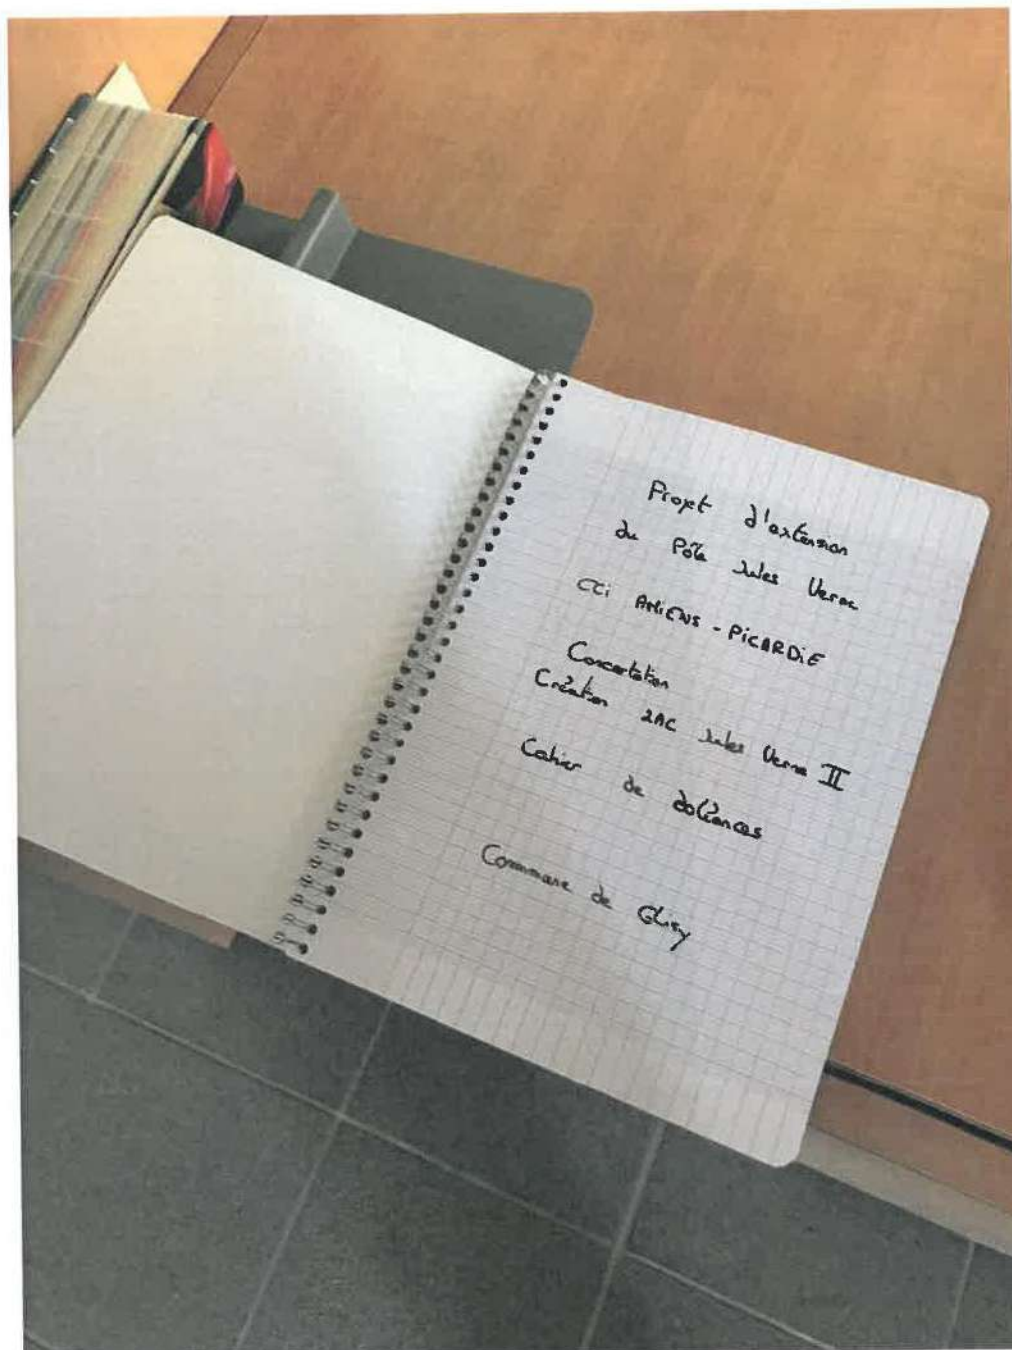 Projet d'extension
du Pôle Jules Verne
CCi AMIENS - PICARDIE
Concertation
Création ZAC Jules Verne II
Cahier de doléances
Commune de Glisy